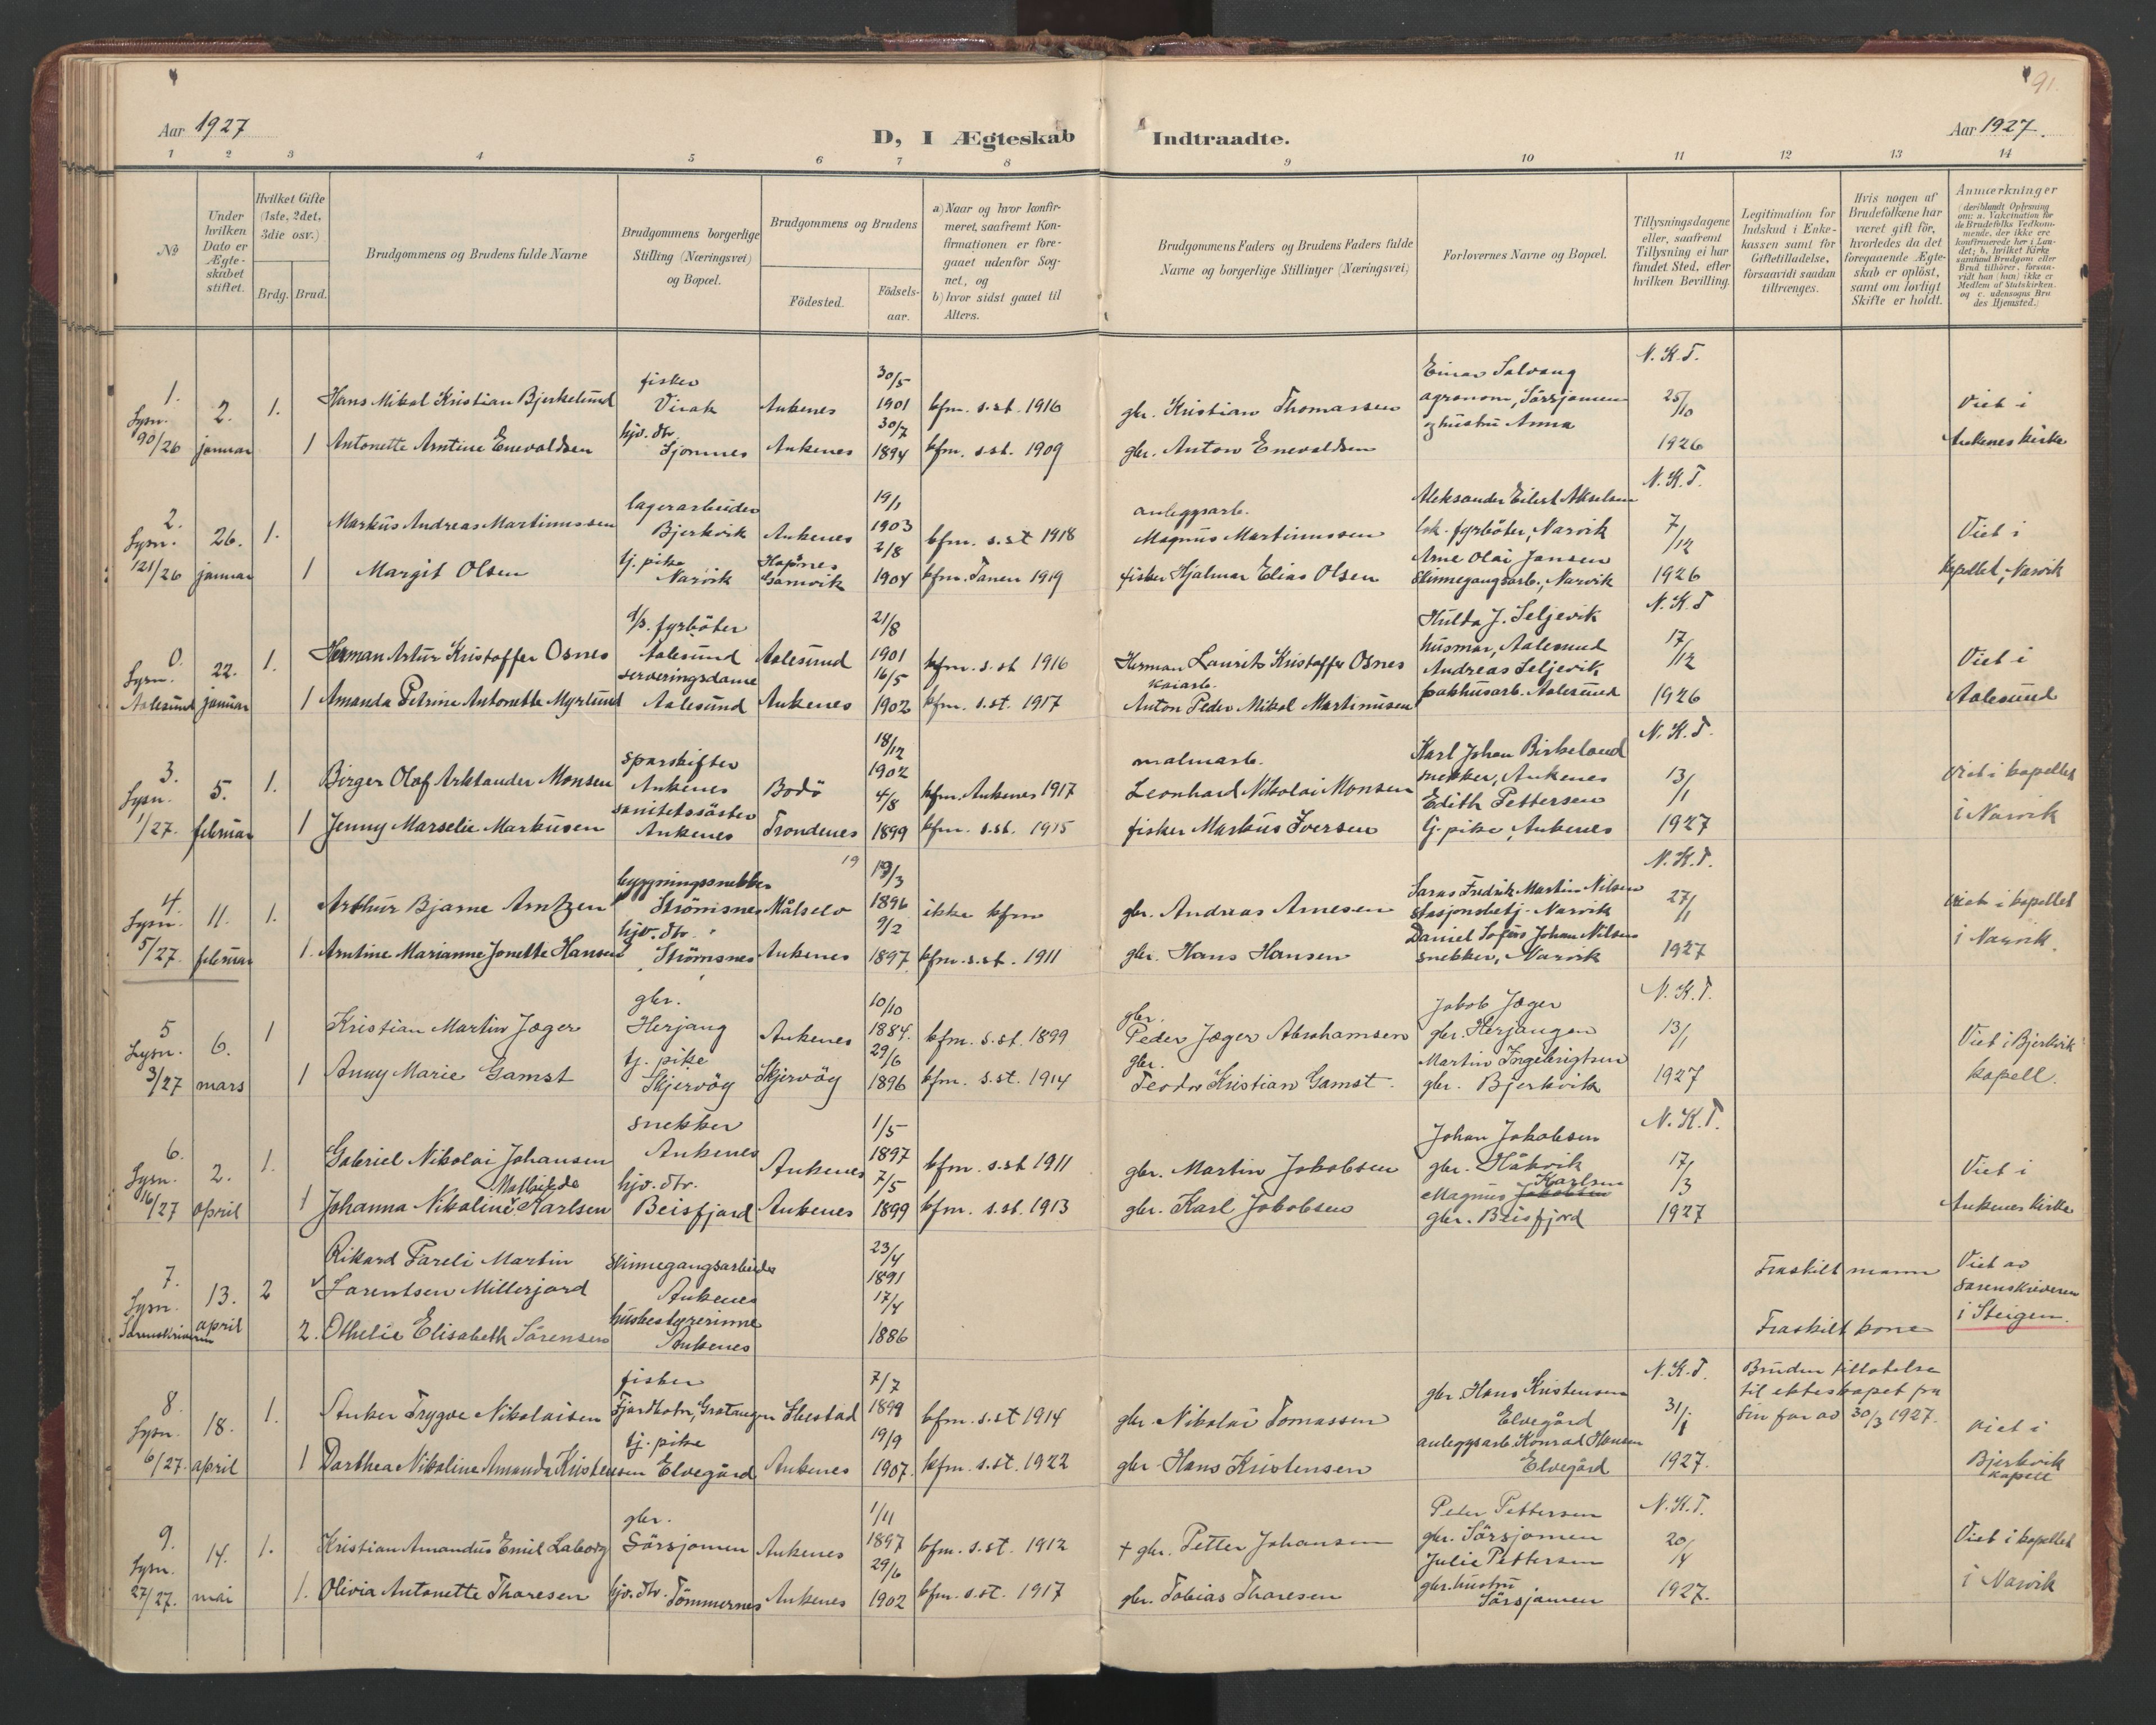 91.
Aar 1927
D, I Ægteskab Indtraadte.
Aar 1927.
1 2 3 4 5 6 7 8 9 10 11 12 13 14
№
Under hvilken Dato er Ægteskabet stiftet.
Hvilket Gifte (1ste, 2det, 3die osv.)
Brdg. Brud.
Brudgommens og Brudens fulde Navne
Brudgommens borgerlige Stilling (Næringsvei) og Bopæl.
Brudgommens og Brudens
Födested.
Födselsaar.
a) Naar og hvor konfirmeret, saafremt Konfirmationen er foregaaet udenfor Sognet, og
b) hvor sidst gaaet til Alters.
Brudgommens Faders og Brudens Faders fulde Navne og borgerlige Stillinger (Næringsvei)
Forlovernes Navne og Bopæl.
Tillysningsdagene eller, saafremt Tillysning ei har fundet Sted, efter hvilken Bevilling.
Legitimation for Indskud i Enkekassen samt for Giftetilladelse, forsaavidt saadan tiltrænges.
Hvis nogen af Brudefolkene har været gift för, hvorledes da det foregaaende Ægteskab er oplöst, samt om lovligt Skifte er holdt.
Anmærkninger
(deriblandt Oplysning om: a. Vakcination for de Brudefolks Vedkommende, der ikke ere konfirmerede her i Landet; b. hvilket Kirkesamfund Brudgom eller Brud tilhører, forsaavidt han (hun) ikke er Medlem af Statskirken. og c. udensogns Brudes Hjemsted.)
1. Lysn. 90/26
2. januar
1. Hans Mikal Kristian Bjerkelund fisker Virak Ankenes 30/5 1901 kfm. s.st. 1916 gbr. Kristian Thomassen
1 Antonette Arntine Enevoldsen hjv. dtr. Ankenes 30/7 1894 kfm. s.st. 1909 gbr. Anton Enevoldsen
Einar Solvang
agronom, Sörsjomen
og hustru Anna
N. K. T. 25/10 1926
Viet i
Ankenes kirke
2. Lysn. 121/26
26. januar
1. Markus Andreas Martinussen lagerarbeider Bjerkvik Ankenes 19/1 1903 kfm. s.st 1918 anleggsarb. Magnus Martinussen
1 Margit Olsen tj. pike Narvik Gamvik 2/8 1904 kfm. Tanen 1919 fisker Hjalmar Elias Olsen
Aleksander Eilert Akselsen
lok. fyrböter, Narvik
Arne Olai Jansen
skinnegangsarb., Narvik
N. K. T. 7/12 1926
Viet i
kapellet, Narvik
0. Lysn. Aalesund
22. januar
1. Herman Artur Kristoffer Osnes d/s. fyrböter Aalesund Aalesund 21/8 1901 kfm. s.st 1916 Herman Laurits Kristoffer Osnes
1 Amanda Petrine Antonette Myrlund serveringsdame Aalesund Ankenes 16/5 1902 kfm. s.st. 1917 kaiarb. Anton Peder Mikal Martinusen
Hulda J. Seljevik
husmor, Aalesund
Andreas Seljevik
pakhusarb. Aalesund
N. K. T 17/12 1926
Viet i
Aalesund
3. Lysn. 1/27.
5. februar
1. Birger Olaf Arktander Monsen sporskifter Ankenes Bodö 18/12 1902 kfm. Ankenes 1917 malmarb. Leonhard Nikolai Monsen
1 Jenny Marselie Markusen sanitetssöster Ankenes Trondenes 4/8 1899 kfm. s.st. 1915 fisker Markus Iversen
Karl Johan Birkeland
snekker, Ankenes
Edith Pettersen
tj. pike, Ankenes
N. K. T. 13/1 1927
viet i kapellet
i Narvik
4. Lysn. 5/27
11. februar
1. Arthur Bjarne Arntzen bygningssnekker Strömsnes Målselv 19 19/3 1896 ikke kfm gbr. Andreas Arnesen
1. Arntine Marianne Jonette Hansen hjv. dtr. Strömsnes Ankenes 9/2 1897 kfm. s.st. 1911 gbr. Hans Hansen
Fredrik Martin Nilsen
stasjonsbetj. Narvik
Daniel Sofus Johan Nilsen
snekker, Narvik
N. K. T. 27/1 1927
viet i kapellet
i Narvik.
5 Lysn. 3/27
6. mars
1 Kristian Martin Jæger gbr. Herjang Ankenes 10/10 1884. kfm. s.st. 1899 gbr. Peder Jæger Abrahamsen
1 Anny Marie Gamst tj. pike Skjervöy Skjervöy 29/6 1896 kfm. s.st. 1914 gbr. Teodor Kristian Gamst.
Jakob Jæger
gbr. Herjangen
Martin Ingebrigtsen
gbr. Bjerkvik
N. K. T. 13/1 1927
Viet i Bjerkvik
kapell.
6. Lysn. 16/27
2. april
1. Gabriel Nikolai Johansen snekker Ankenes Ankenes 1/5 1897 kfm. s.st 1911 gbr. Martin Jakobsen
1 Johanna Nikoline Mathilde Karlsen hjv. dtr. Beisfjord Ankenes 7/5 1899 kfm. s.st. 1913 gbr. Karl Jakobsen
Johan Jakobsen
gbr. Håkvik
Magnus Jakobsen Karlsen
gbr. Beisfjord
N. K. T. 17/3 1927
Viet i
Ankenes kirke
7. Lysn. Sorenskriveren
13. april
2 Rikard Fareli Martin Lorentsen Millerjord skinnegangsarbeider Ankenes 23/4 1891
2. Othelie Elisabeth Sörensen husbestyrerinne Ankenes 17/4 1886
Fraskilt mann
Fraskilt kone
Viet av
sorenskriveren
i Steigen.
8. Lysn. 6/27.
18. april
1. Anker Trygve Nikolaisen fisker Fjordbotn, Gratangen Ibestad 7/7 1899 kfm. s.st 1914 gbr. Nikolai Tomassen
1 Dorthea Nikoline Amanda Kristensen tj. pike Elvegård Ankenes 19/9 1907. kfm. s.st. 1922 gbr. Hans Kristensen
gbr. Hans Kristensen
Elvegård
anleggsarb. Konrad Hansen
Elvegård
N. K. T. 31/1 1927.
Bruden tillatelse
til ekteskapet fra
sin far av 30/3 1927.
viet i
Bjerkvik
kapell
9. Lysn. 27/27.
14. mai
1. Kristian Amandus Emil Laborg gbr. Sörsjomen Ankenes 1/11 1897 kfm. s.st. 1912 + gbr. Petter Johansen
1. Olivia Antonette Thoresen hjv. dtr. Tömmernes Ankenes 29/6 1902 kfm. s.st. 1917 gbr. Tobias Thoresen
Peder Pettersen
gbr. Sörsjomen
Julie Pettersen
gbr. hustru
Sörsjomen
N. K. T. 20/4 1927.
Viet i kapellet
i Narvik